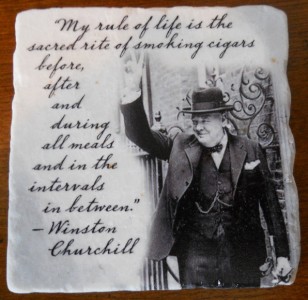 "My rule of life is the
sacred rite of smoking cigars
before,
after
and
during
all meals
and in the
intervals
in between."
– Winston
Churchill